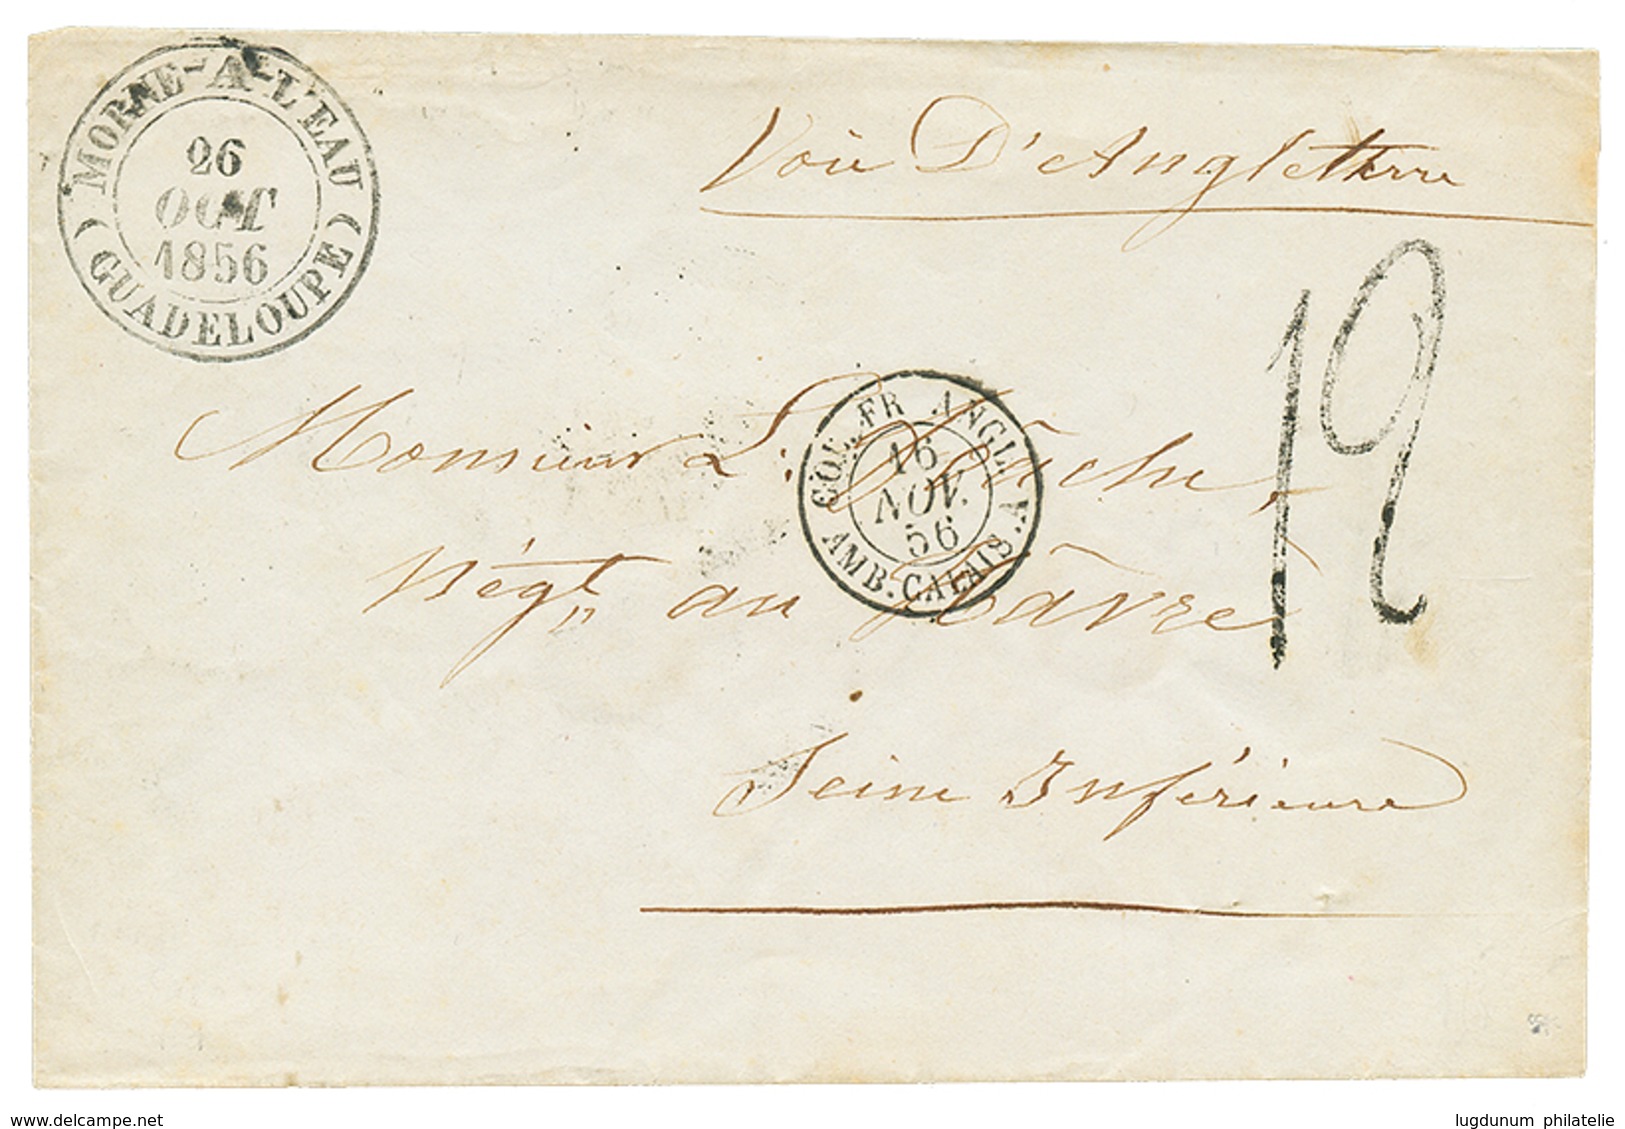 MORNE-A-L'EAU
26
OCT
1856
(GUADELOUPE)
Voie D'Angleterre
12
COL. FR ANGL.
16
NOV.
56
AMB. CALAIS. A
Monsieur
Négt au Hâvre
Seine Inférieure
delcampe.net
lugdunum philatelie